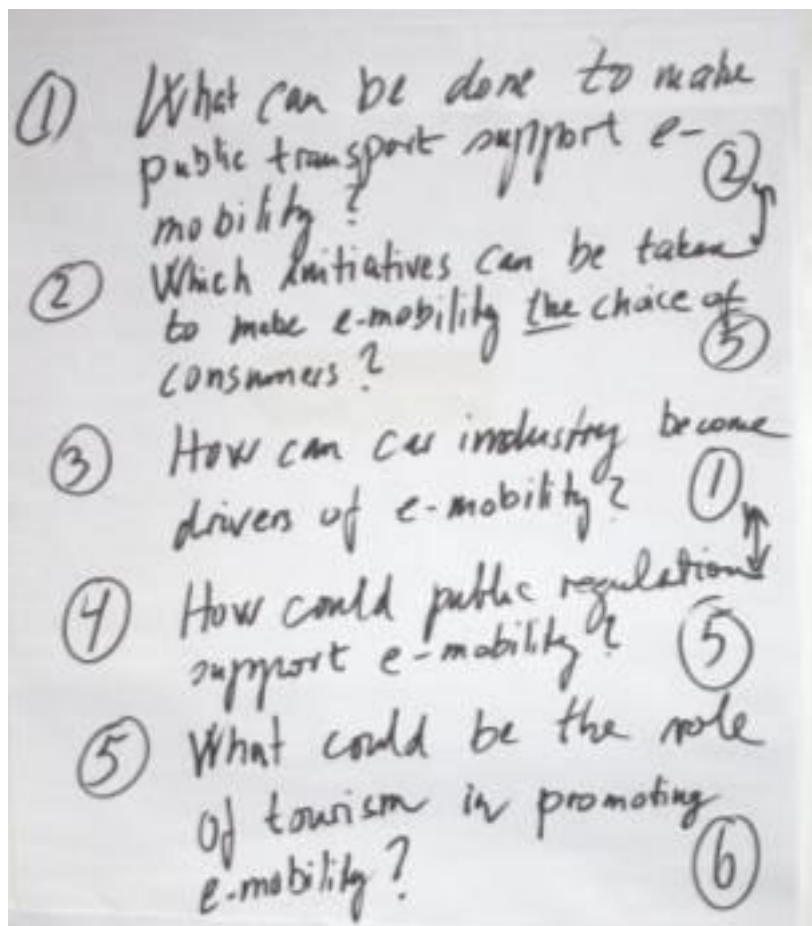 ① What can be done to make
public transport support e-
mobility? ②
② Which initiatives can be taken
to make e-mobility the choice of
consumers? ⑤
③ How can car industry become
drivers of e-mobility? ①
④ How could public regulation
support e-mobility? ⑤
⑤ What could be the role
of tourism in promoting
e-mobility? ⑥